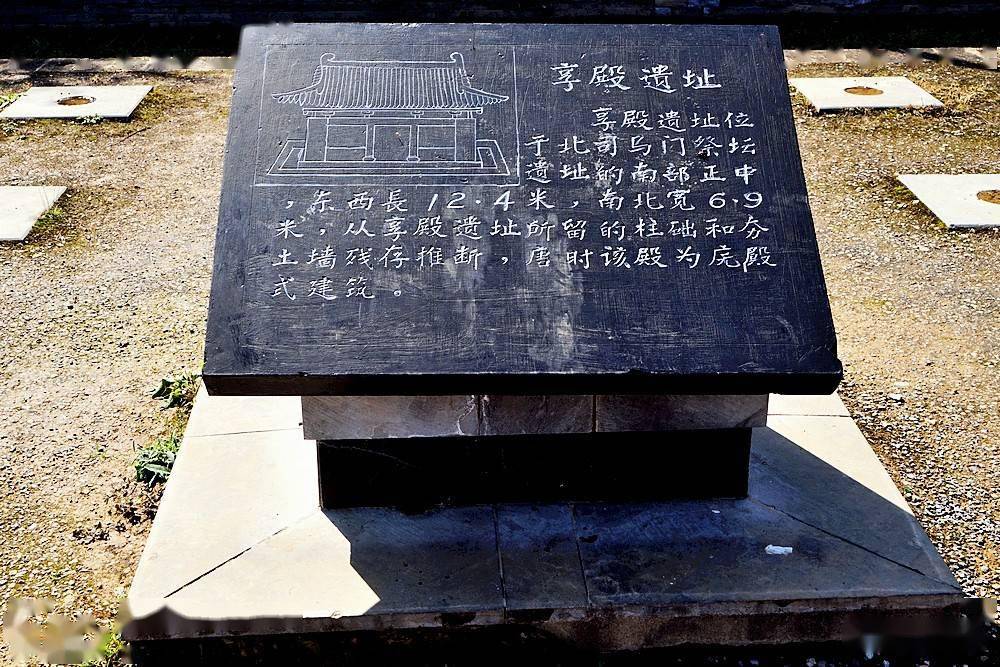 享殿遗址
享殿遗址位
于北司马门祭坛
遗址的南部正中
，东西長12.4米，南北宽6.9
米，从享殿遗址所留的柱础和夯
土墙残存推断，唐时该殿为庑殿
式建筑。